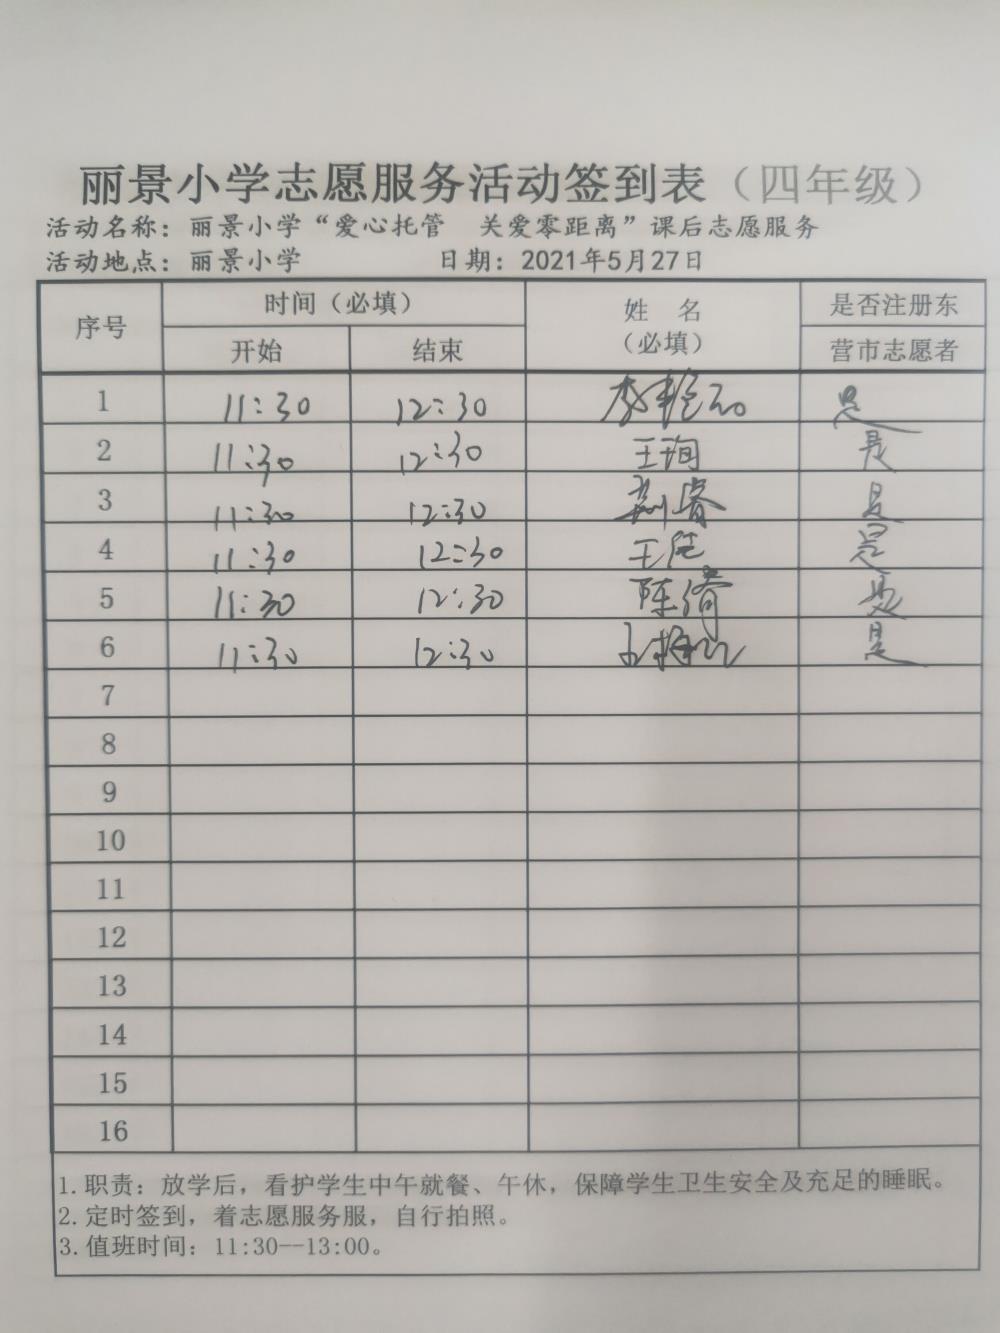 丽景小学志愿服务活动签到表（四年级）
活动名称：丽景小学“爱心托管 关爱零距离”课后志愿服务
活动地点：丽景小学 日期：2021年5月27日
序号 时间（必填） 姓 名（必填） 是否注册东
开始 结束 营市志愿者
1 11:30 12:30 是
2 11:30 12:30 王珣 是
3 11:30 12:30 是
4 11:30 12:30 是
5 11:30 12:30 是
6 11:30 12:30 是
7
8
9
10
11
12
13
14
15
16
1.职责：放学后，看护学生中午就餐、午休，保障学生卫生安全及充足的睡眠。
2.定时签到，着志愿服务服，自行拍照。
3.值班时间：11:30--13:00。